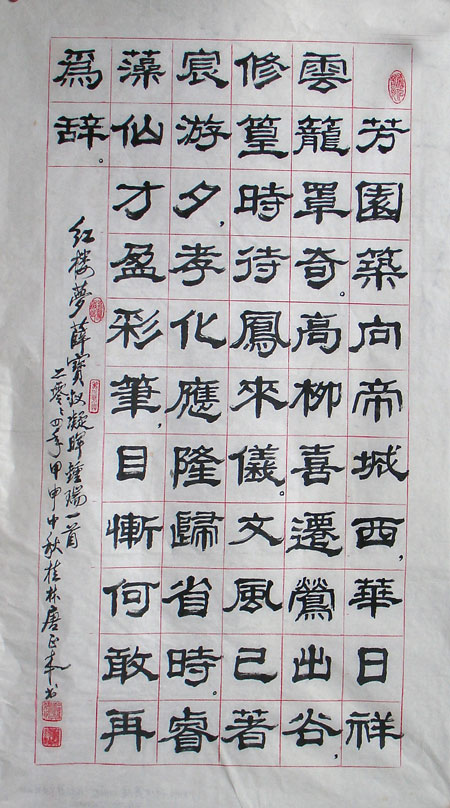 芳園築向帝城西，華日祥
雲籠罩奇。高柳喜遷鶯出谷，
修篁時待鳳來儀。文風已著
宸游夕，孝化應隆歸省時。睿
藻仙才盈彩筆，目慚何敢再
爲辞。
红楼夢薛寳釵凝晖鐘瑞一首
二零〻四年甲申中秋桂林唐正书